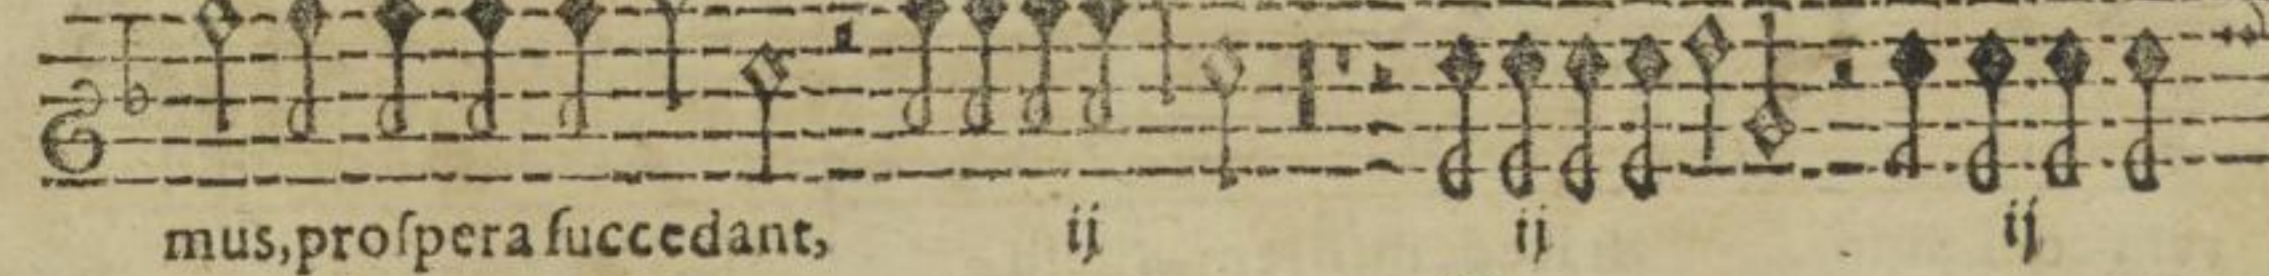 mus, proſpera ſuccedant, ij ij ij